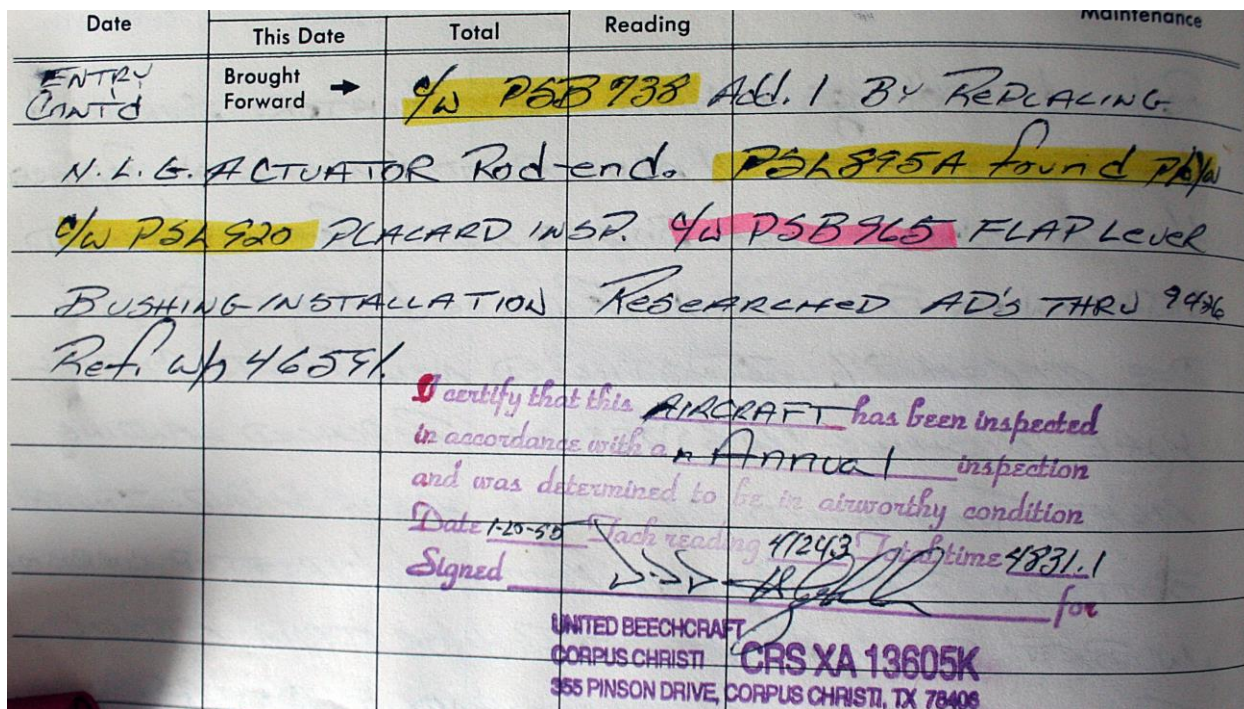 Date This Date Total Reading Maintenance
ENTRY CONT'd Brought Forward → c/w PSB 738 Add. 1 BY REPLACING
N.L.G. ACTUATOR Rod-end. PSL895A found p/c/w
c/w PSL 920 PLACARD INSP. c/w PSB965 FLAP Lever
BUSHING INSTALLATION RESEARCHED AD'S THRU
Ref. w/o
I certify that this AIRCRAFT has been inspected
in accordance with an Annual inspection
and was determined to be in airworthy condition
Date Tach reading Total time 4831.1
Signed for
UNITED BEECHCRAFT
CORPUS CHRISTI CRS XA 13605K
355 PINSON DRIVE, CORPUS CHRISTI, TX 78406